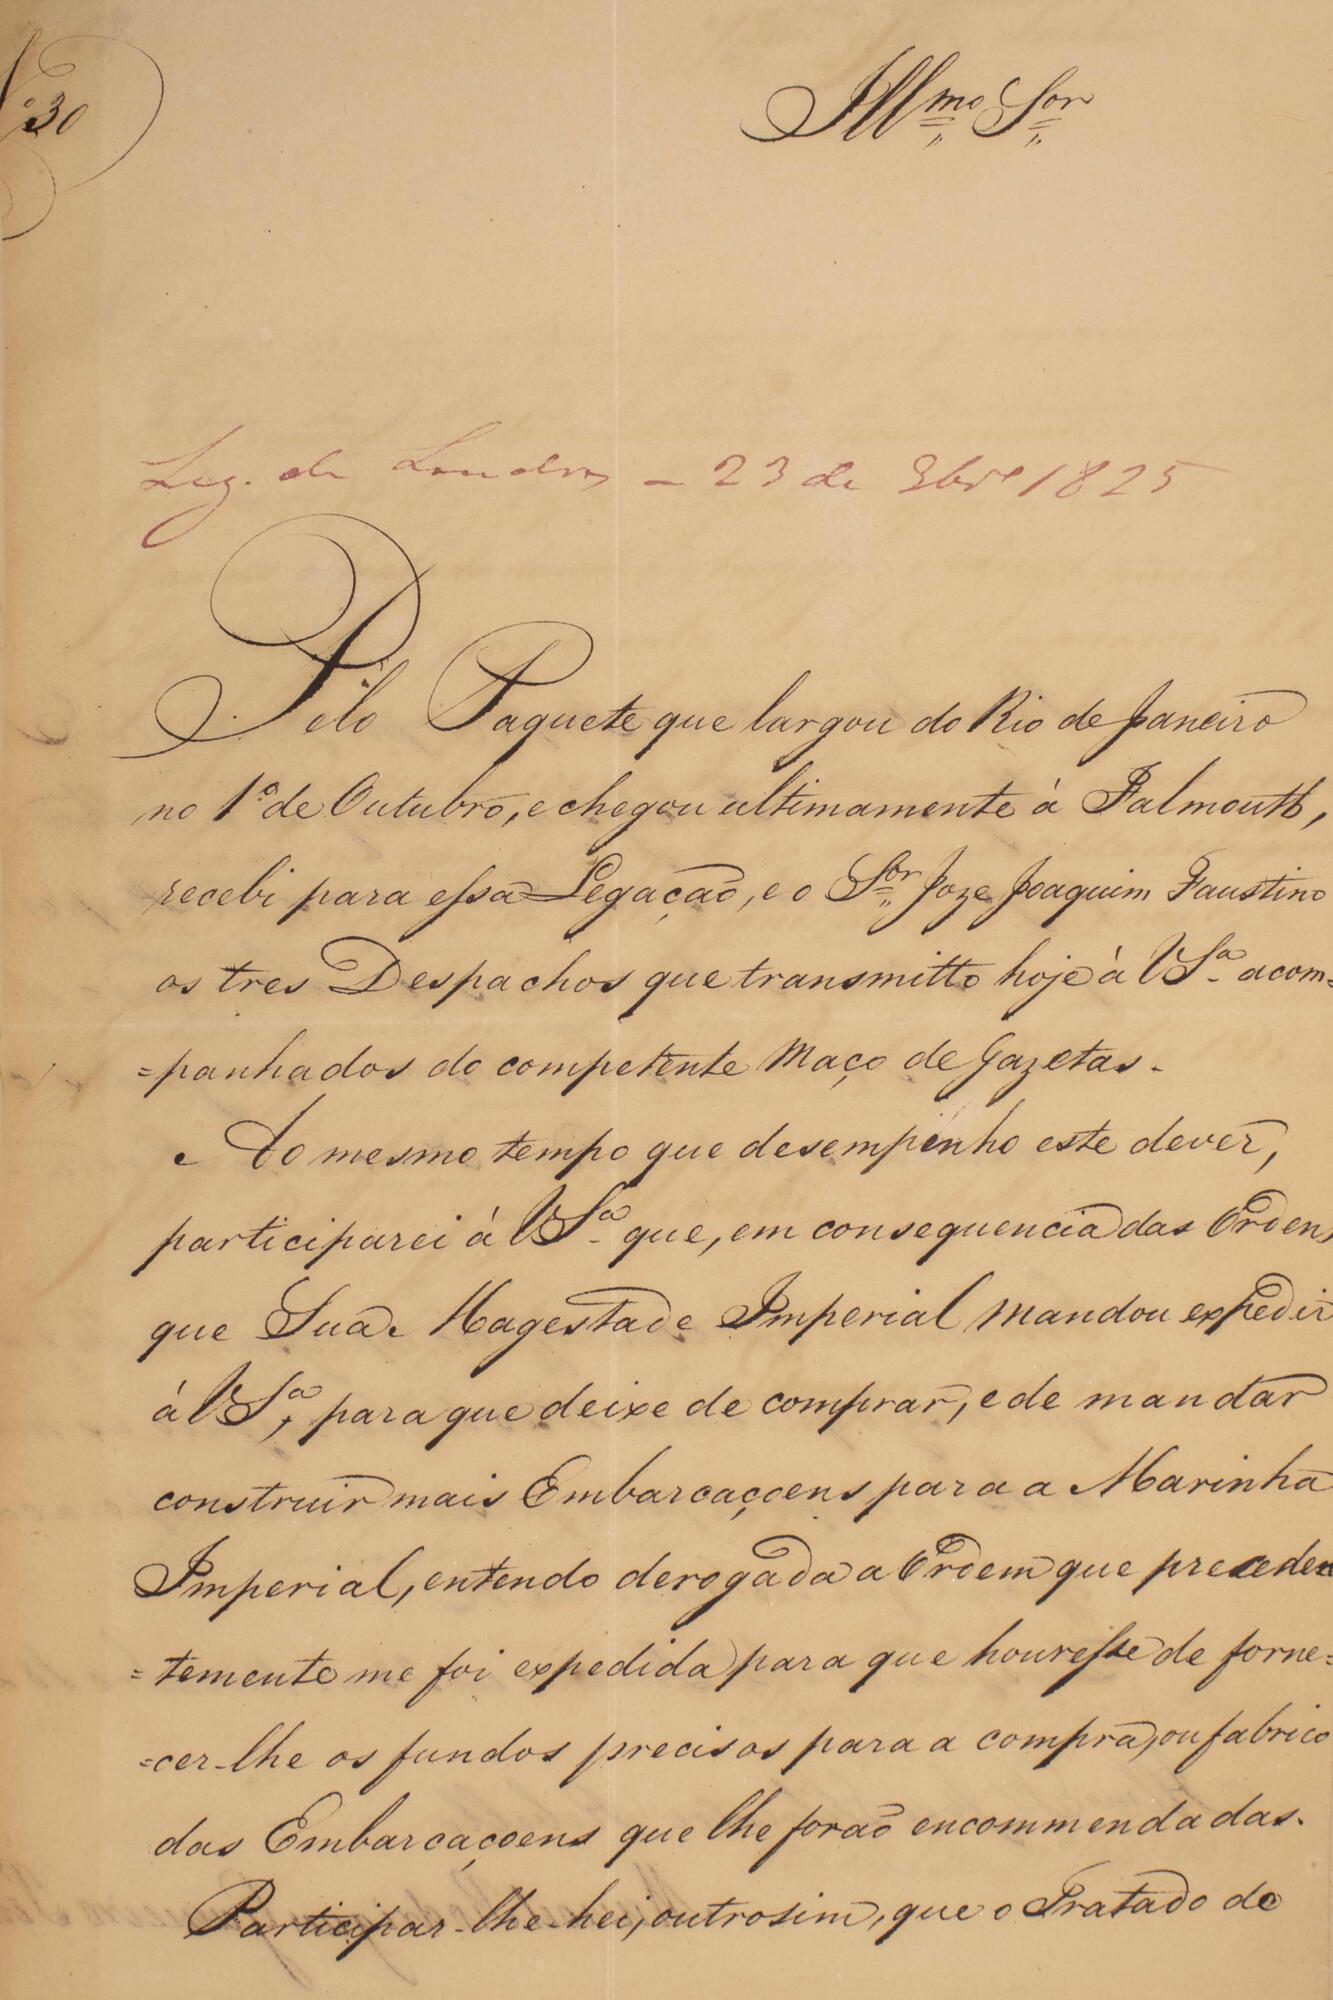 Nº 30
Illmo Sor
Leg. de Londres - 23 de 9bro 1825
Pelo Paquete que largou do Rio de Janeiro
no 1º de Outubro, e chegou ultimamente à Falmouth,
recebi para essa Legação, e o Sor Joze Joaquim Faustino
os tres Despachos que transmitto hoje à VSa acom=
=panhados do competente Maço de Gazetas.
Ao mesmo tempo que desempenho este dever,
participarei á VSa que, em consequencia das Ordens
que Sua Magestade Imperial mandou expedir
á VSa, para que deixe de comprar, e de mandar
construir mais Embarcaçoens para a Marinha
Imperial, entendo derogada a Ordem que preceden
=temente me foi expedida para que houvesse de forne=
=cer-lhe os fundos precisos para a compra, ou fabrico
das Embarcaçoens que lhe forão encommendadas.
Participar-lhe-hei, outrosim, que o Tratado de